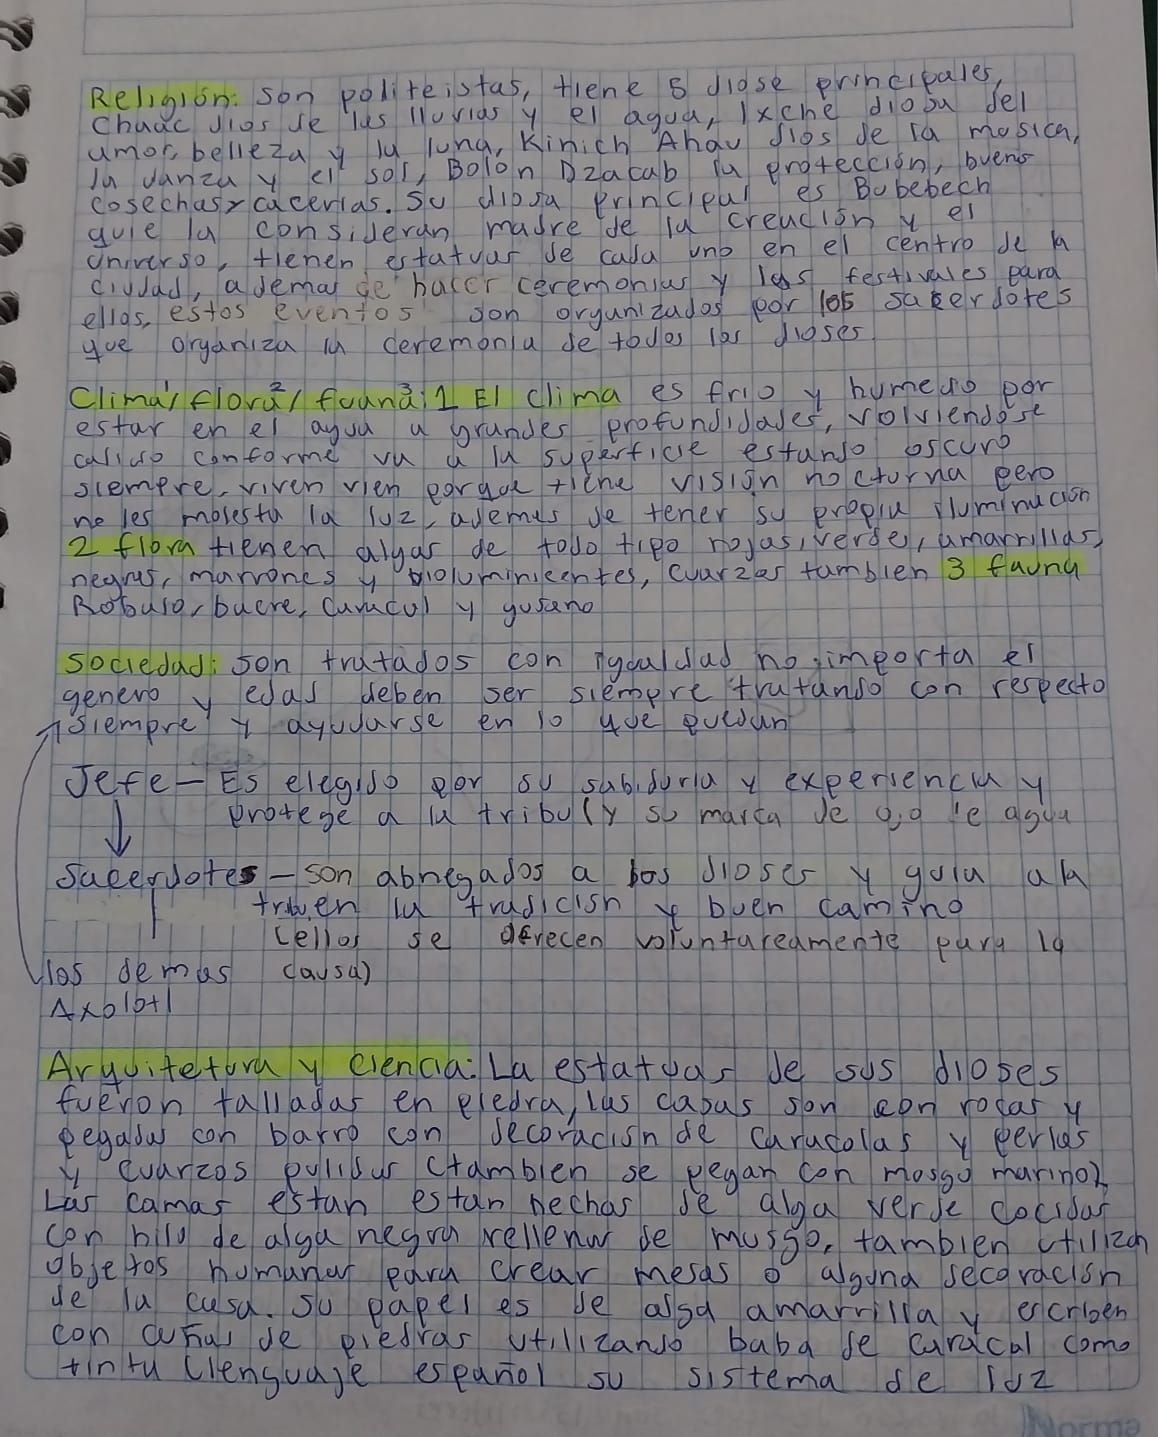 Religión: son politeistas, tiene 5 diose principales,
Chaac dios de las lluvias y el agua, Ixche diosa del
amor, belleza y la luna, Kinich Ahau dios de la musica,
la danza y el sol, Bolon Dzacab la protección, buens
cosechas y cacerias. Su diosa principal es Bubebech
quie la consideran madre de la creación y el
universo, tienen estatuas de cada uno en el centro de la
ciudad, ademas de hacer ceremonias y las festivales para
ellos, estos eventos son organizados por los sacerdotes
que organiza la ceremonia de todos los dioses
Clima¹/ flora²/ fauna³: 1 El clima es frio y humedo por
estar en el agua a grandes profundidades, volviendose
calido conforme va a la superficie estando oscuro
siempre, viven vien porque tiene visión nocturna pero
no les molesta la luz, ademas de tener su propia iluminación
2 flora tienen algas de todo tipo rojas, verdes, amarrillas,
negras, marrones y bioluminicentes, cuarzos tambien 3 fauna
Robalo, bacre, caracol y gusano
sociedad: son tratados con igualdad no importa el
genero y edad deben ser siempre tratando con respecto
siempre y ayudarse en lo que puedan
Jefe - Es elegido por su sabiduria y experiencia y
protege a la tribu (y su marca de ojo de agua
Sacerdotes - son abnegados a los dioses y guia a la
tribu en la tradición y buen camino
(ellos se ofrecen voluntareamente para la
los demas causa)
Axolotl
Arquitetura y ciencia: La estatuas de sus dioses
fueron talladas en piedra, las casas son con rocas y
pegadas con barro con decoración de caracolas y perlas
y cuarzos pulidos (tambien se pegan con mosgo marino)
Las camas estan estan hechas de alga verde cocidas
con hilo de alga negra rellenas de musgo, tambien utilizan
objetos humanos para crear mesas o alguna decoración
de la casa. Su papel es de alga amarrilla y escriben
con cuñas de piedras utilizando baba de caracol como
tinta (lenguaje español su sistema de luz
Norma